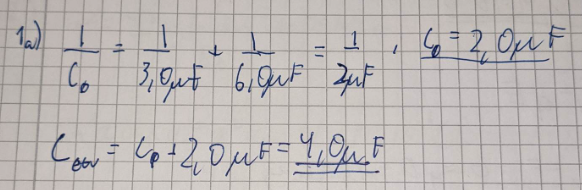 1a) 1/C₀ = 1/3,0μF + 1/6,0μF = 1/2μF , C₀ = 2,0μF
= C₀ + 2,0μF = 4,0μF